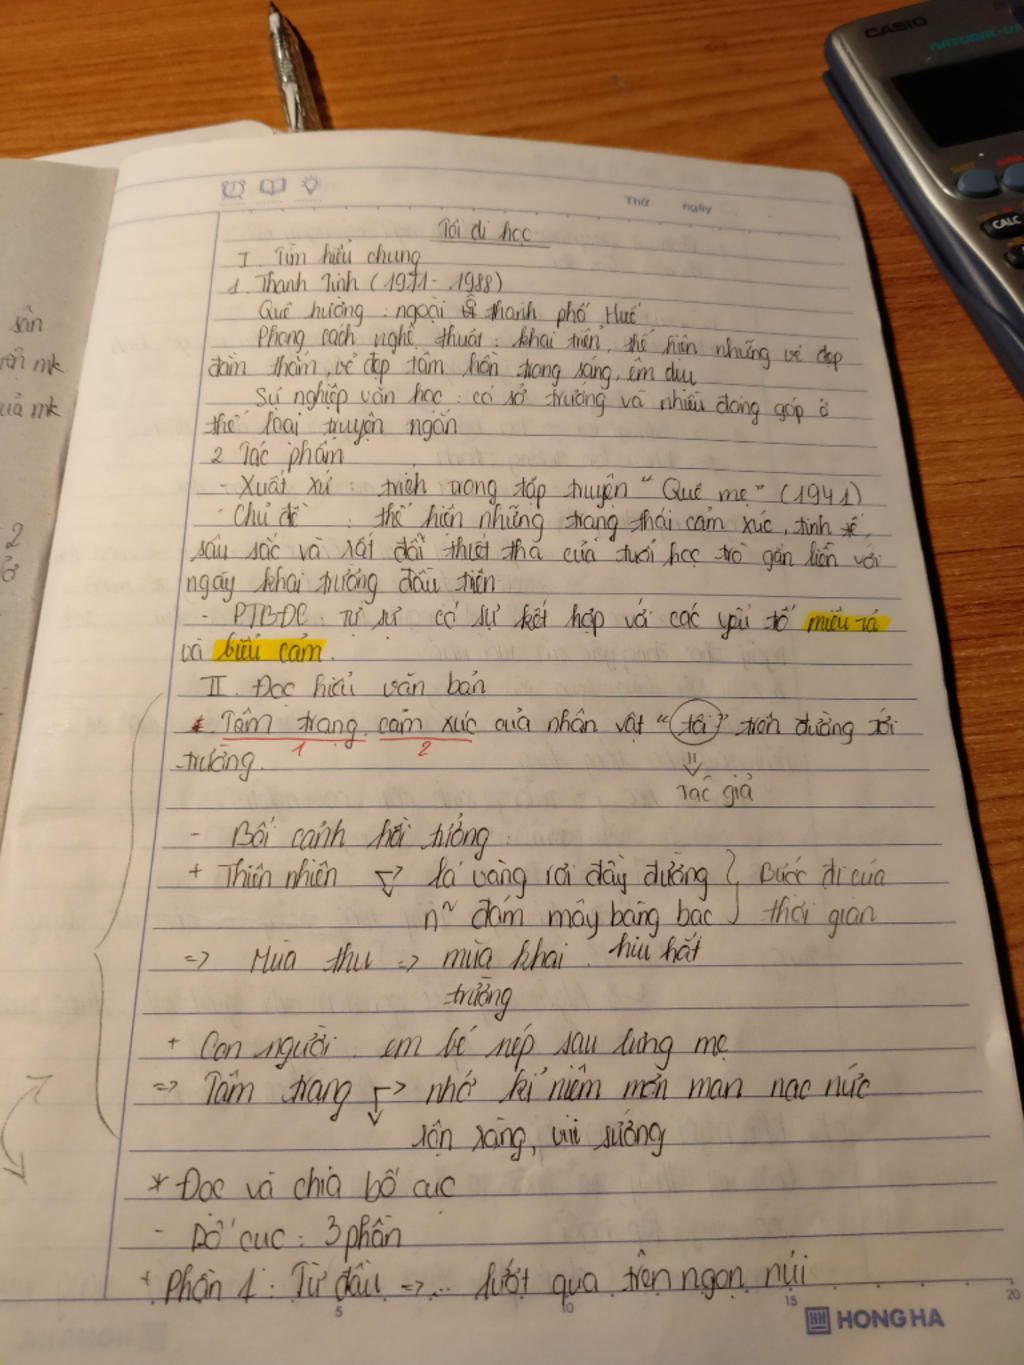 CASIO
NATURAL-V.
CALC
Thứ ngày
sân
mk
mk
2
Tôi đi học
I. Tìm hiểu chung
1. Thanh Tịnh (1911 - 1988)
Quê hương : ngoại thành phố Huế
Phong cách nghệ thuật : khai triển, thể hiện những vẻ đẹp
đằm thắm, vẻ đẹp tâm hồn trong sáng, êm dịu
Sự nghiệp văn học : có sở trường và nhiều đóng góp ở
thể loại truyện ngắn
2 Tác phẩm
- Xuất xứ : trích trong tập truyện " Quê mẹ " (1941)
- Chủ đề : thể hiện những trạng thái cảm xúc, tinh tế,
sâu sắc và rất đỗi thiết tha của tuổi học trò gắn liền với
ngày khai trường đầu tiên
- PTBĐC : Tự sự có sự kết hợp với các yếu tố miêu tả
và biểu cảm.
II. Đọc hiểu văn bản
* Tâm trạng, cảm xúc của nhân vật " tôi " trên đường tới
1 2
trường.
Tác giả
- Bối cảnh hồi tưởng :
+ Thiên nhiên lá vàng rơi đầy đường } Bước đi của
n~ đám mây bàng bạc thời gian
=> Mùa thu => mùa khai hiu hắt
trường
+ Con người : em bé nép sau lưng mẹ
=> Tâm trạng -> nhớ kỉ niệm mơn man nạc nức
rộn ràng, vui sướng
* Đọc và chia bố cục
- Bố cục : 3 phần
+ Phần 1 : Từ đầu => ... lướt qua trên ngọn núi
5 10 15 20
HONG HA